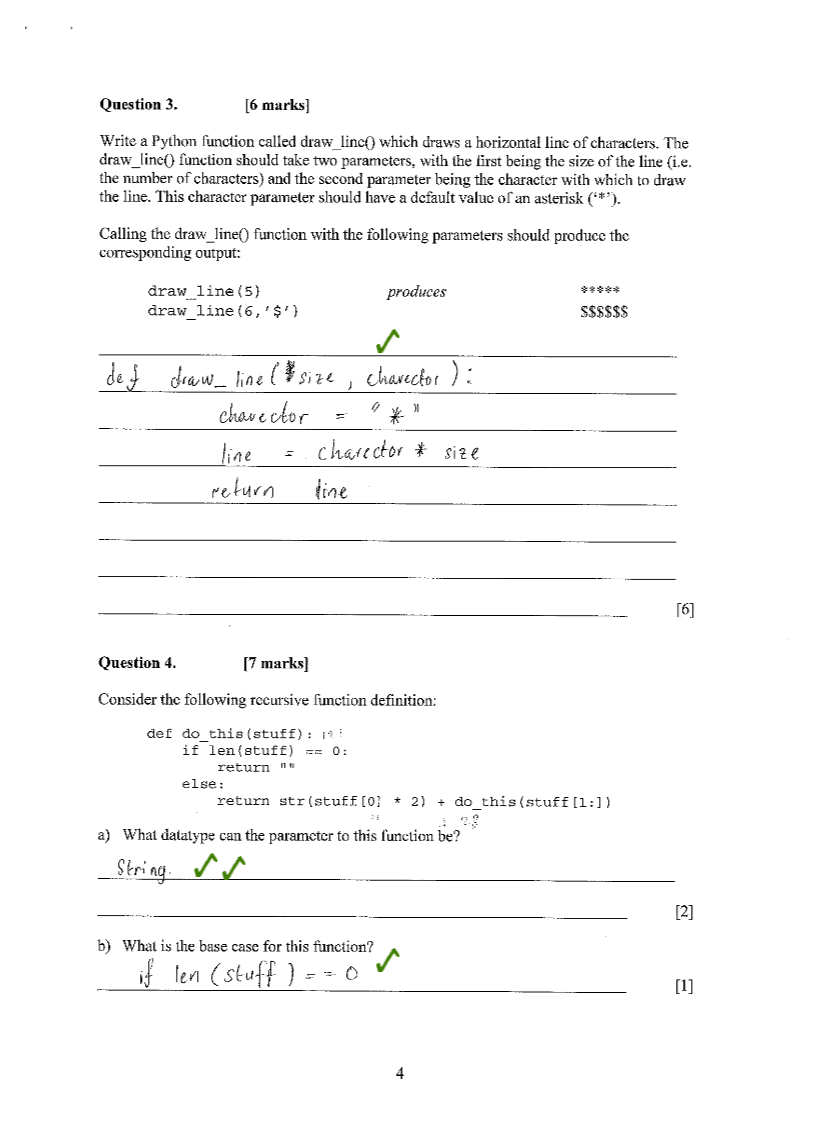 Question 3. [6 marks]
Write a Python function called draw_line() which draws a horizontal line of characters. The
draw_line() function should take two parameters, with the first being the size of the line (i.e.
the number of characters) and the second parameter being the character with which to draw
the line. This character parameter should have a default value of an asterisk (‘*’).
Calling the draw_line() function with the following parameters should produce the
corresponding output:
draw_line(5) produces *****
draw_line(6,'$') $$$$$$
def draw_line(size, charector):
charector = "*"
line = charector * size
return line
[6]
Question 4. [7 marks]
Consider the following recursive function definition:
def do_this(stuff):
if len(stuff) == 0:
return ""
else:
return str(stuff[0] * 2) + do_this(stuff[1:])
a) What datatype can the parameter to this function be?
String.
[2]
b) What is the base case for this function?
if len(stuff) == 0
[1]
4